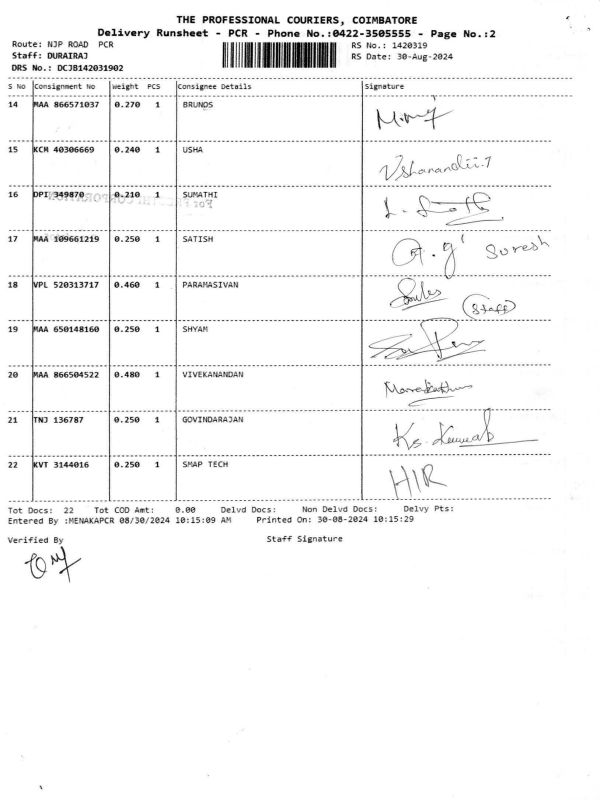 THE PROFESSIONAL COURIERS, COIMBATORE
Delivery Runsheet - PCR - Phone No.:0422-3505555 - Page No.:2
Route: NJP ROAD PCR RS No.: 1420319
Staff: DURAIRAJ RS Date: 30-Aug-2024
DRS No.: DCJB142031902
S No Consignment No Weight PCS Consignee Details Signature
14 MAA 866571037 0.270 1 BRUNDS
15 KCM 40306669 0.240 1 USHA
16 DPI 349870 0.210 1 SUMATHI
17 MAA 109661219 0.250 1 SATISH Suresh
18 VPL 520313717 0.460 1 PARAMASIVAN (Staff)
19 MAA 650148160 0.250 1 SHYAM
20 MAA 866504522 0.480 1 VIVEKANANDAN
21 TNJ 136787 0.250 1 GOVINDARAJAN
22 KVT 3144016 0.250 1 SMAP TECH HIR
Tot Docs: 22 Tot COD Amt: 0.00 Delvd Docs: Non Delvd Docs: Delvy Pts:
Entered By :MENAKAPCR 08/30/2024 10:15:09 AM Printed On: 30-08-2024 10:15:29
Verified By Staff Signature